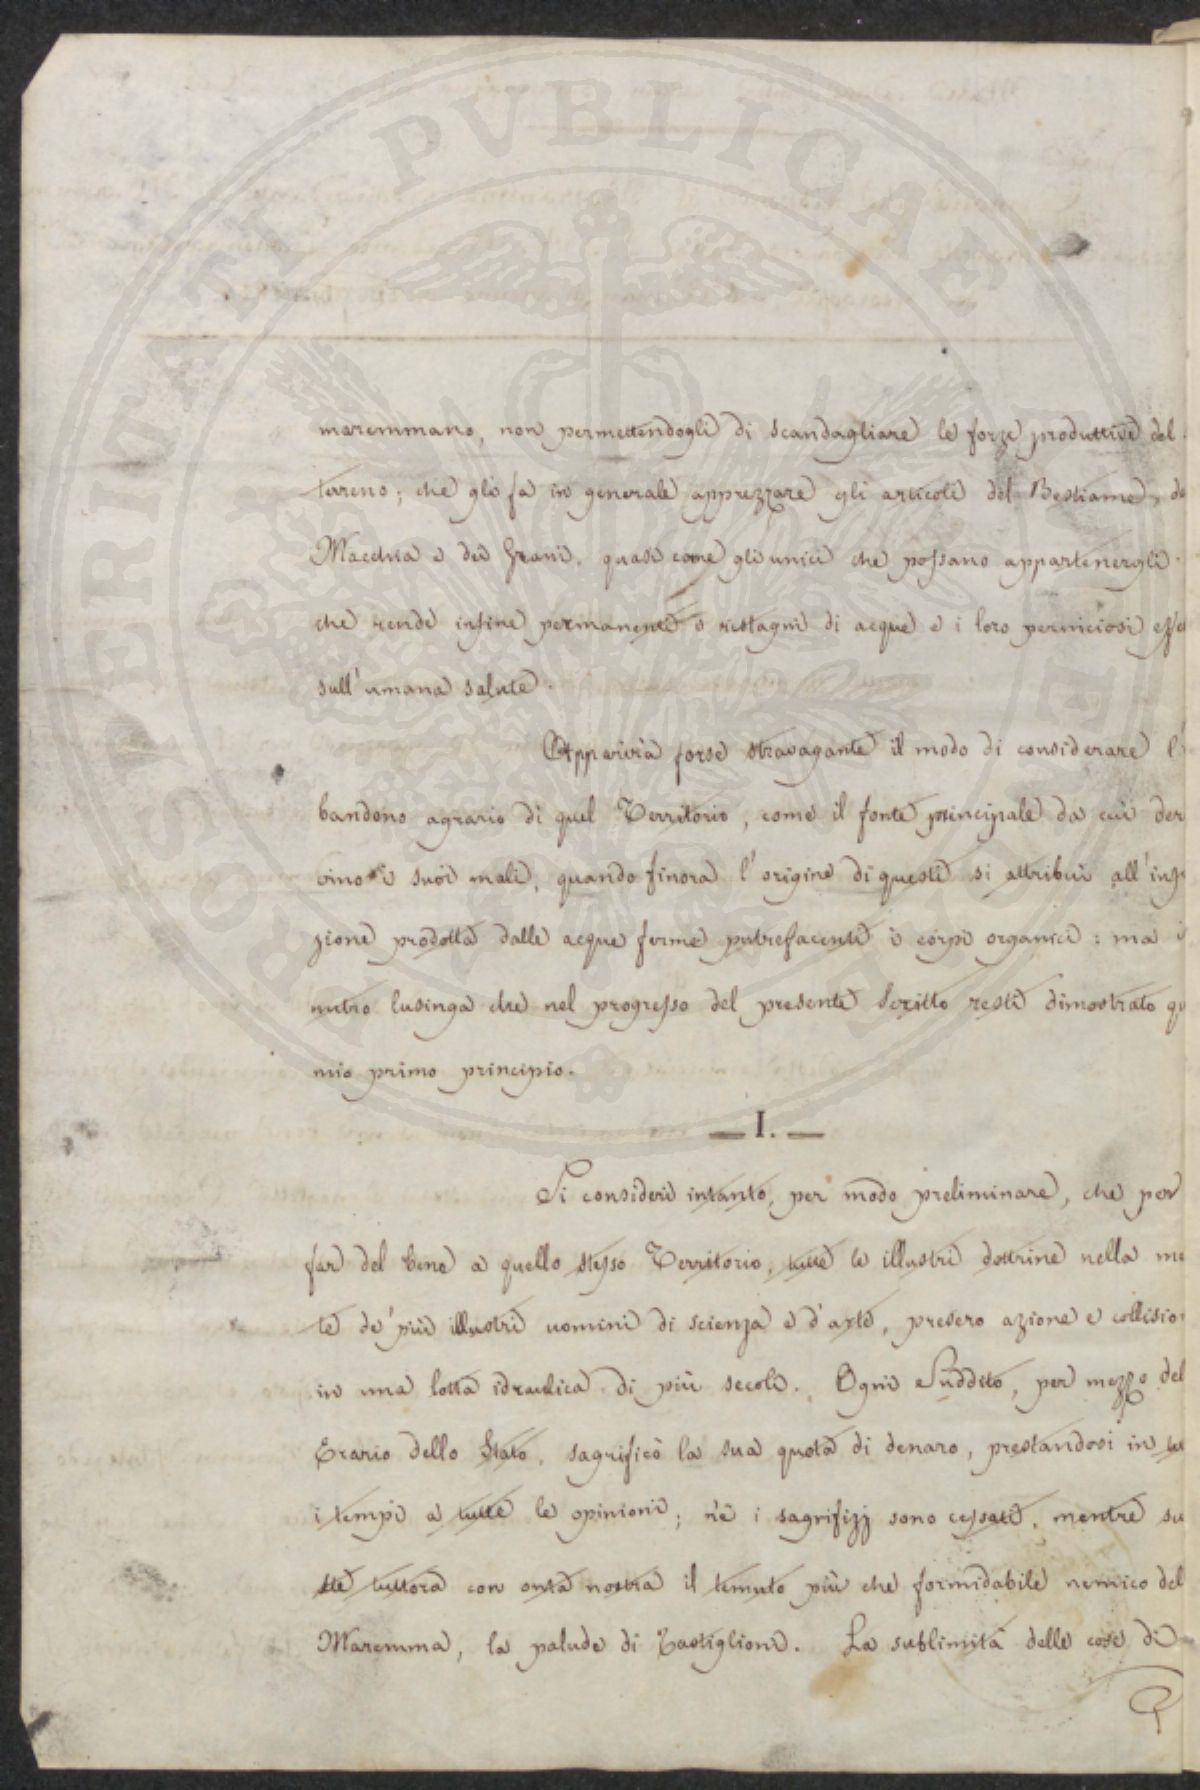 PROSPERITATI PVBLICAE
maremmano, non permettendogli di scandagliare le forze produttive del
terreno; che gli fa in generale apprezzare gli articoli del Bestiame, de
Macchia e dei Grani, quasi come gli unici che possano appartenergli
che rende infine permanenti i ristagni di acque e i loro perniciosi effe
sull'umana salute.
Apparirà forse stravagante il modo di considerare l'
bandono agrario di quel Territorio, come il fonte principale da cui der
vino i suoi mali, quando finora l'origine di questi si attribuì all'infe
zione prodotta dalle acque ferme putrefacenti i corpi organici: ma i
nutro lusinga che nel progresso del presente Scritto resti dimostrato qu
mio primo principio.
— I. —
Si consideri intanto, per modo preliminare, che per
far del bene a quello stesso Territorio, tutte le illustri dottrine nella me
te de' più illustri uomini di scienza e d'arte, presero azione e collisio
in una lotta idraulica di più secoli. Ogni Suddito, per mezzo del
Erario dello Stato, sagrificò la sua quota di denaro, prestandosi in tu
i tempi a tutte le opinioni; nè i sagrifizj sono cessati, mentre su
ste tuttora con onta nostra il temuto più che formidabile nemico del
Maremma, la palude di Castiglioni. La sublimità delle cose di